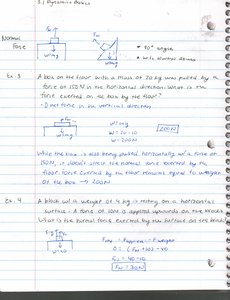 3.1 Dynamics Basics
Normal
Force
FN
FN
w=mg
w=mg
* 90° angle
Ex. 3
A box on the floor with a mass of 20 kg was pulled by the
force of 150N in the horizontal direction. What is the
force exerted on the box by the floor?
* 0 net force in the vertical direction
w=mg
W = 20·10
W = 200N
200N
w=mg
While the box is still being pulled horizontally w/ a force of
150N, it doesn't affect the normal force exerted by the
floor. Force exerted by the floor remained equal to weight
of the box → 200N
Ex. 4
A block w/ a weight of 40 kg is resting on a horizontal
surface. A force of 10N is applied upwards on the block.
What is the normal force exerted by the surface on the block?
w=mg
0 = (FN + 10) - 40
FN = 40 - 10
FN = 30N